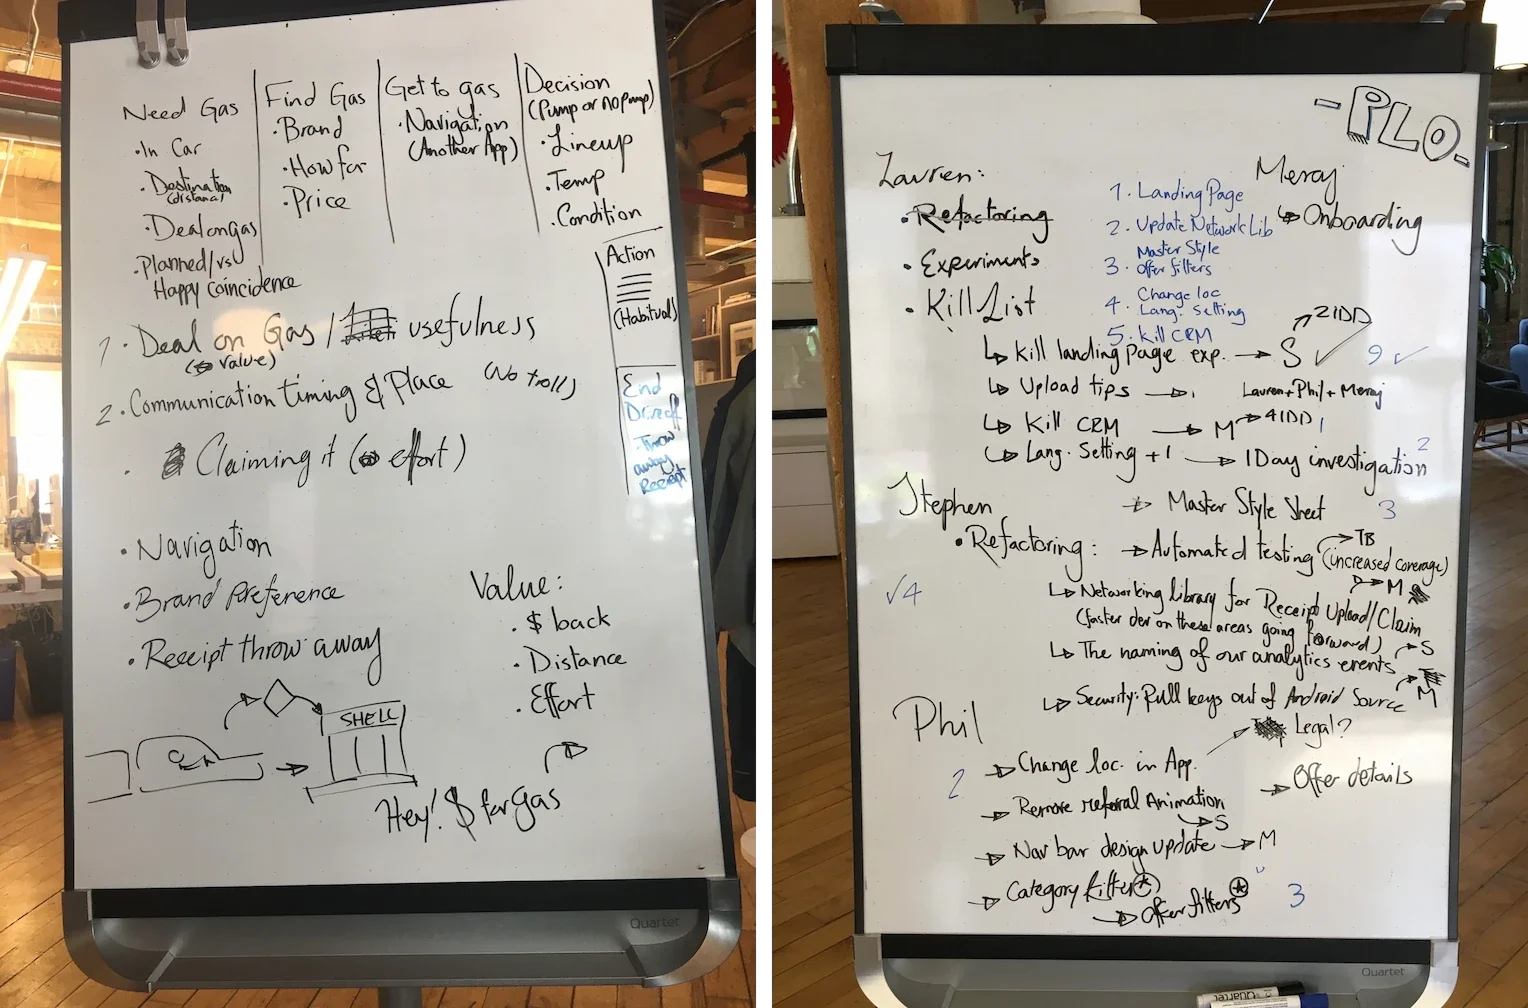 Need Gas
· In Car
· Destination
(distance)
· Deal on gas
· Planned/vs
Happy Coincidence
Find Gas
· Brand
· How far
· Price
Get to gas
· Navigation
(Another App)
Decision
(Pump or no pump)
· Lineup
· Temp
· Condition
Action
(Habitual)
End
· Throw
away
Receipt
1. Deal on Gas / usefulness
(value)
2. Communication timing & Place (No troll)
· Claiming it (effort)
· Navigation
· Brand Preference
· Receipt throw away
Value:
· $ back
· Distance
· Effort
SHELL
Hey! $ for gas
Quartet
- PILO -
Lauren:
· Refactoring
· Experiments
· Kill List
1. Landing Page
2. Update Network Lib
Master Style
3. Offer filters
4. Change loc
Lang. Setting
5. Kill CRM
Meraj
Onboarding
Kill landing page exp. → S ✓
2IDD
9 ✓
Upload tips → 1
Lauren + Phil + Meraj
Kill CRM → M → 4IDD 1
Lang. Setting +1 → 1 Day investigation 2
Stephen
→ Master Style Sheet 3
· Refactoring: → Automated testing (increased coverage)
TB
M
✓4
Networking library for Receipt Upload/Claim
(faster dev on these areas going forward)
The naming of our analytics events → S
Security: Pull keys out of Android Source → M
Phil
Legal?
2
→ Change loc. in App.
→ Offer details
→ Remove referral Animation
→ S
→ Nav bar design update → M
→ Category filter
→ Offer filters 3
Quartet
Quartet